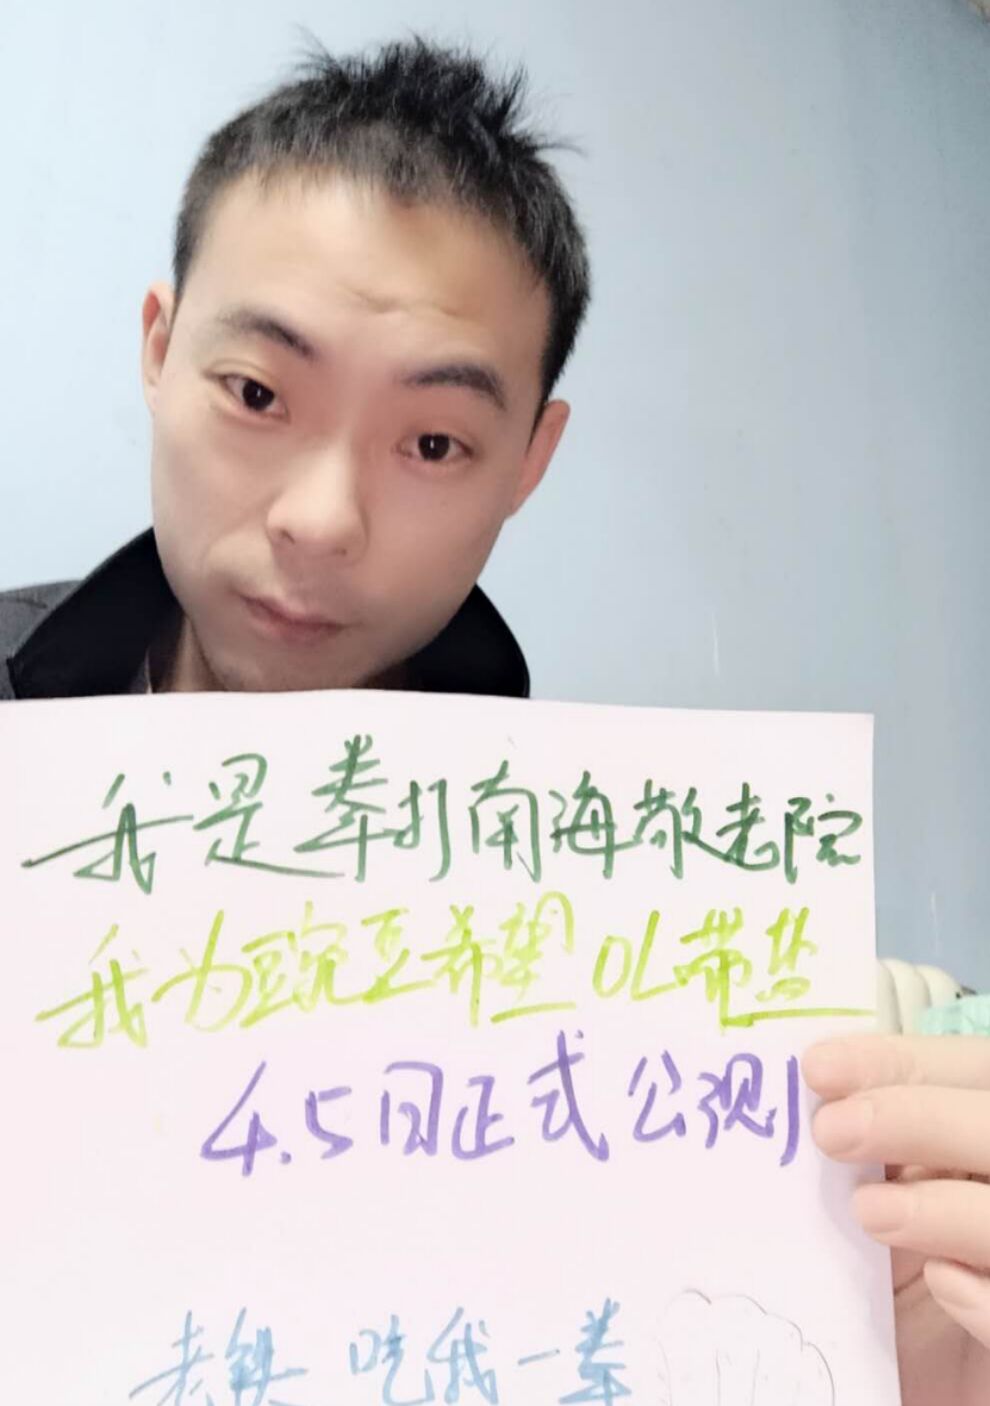 我是拳打南海敬老院
我为豌豆希望OL带盐
4.5日正式公测
老铁 吃我一拳